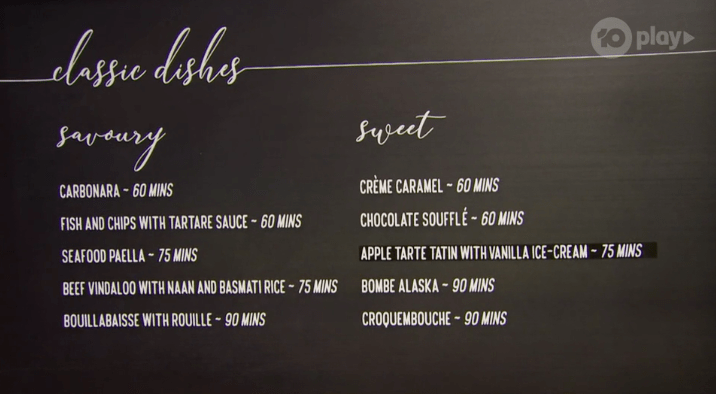 10 play
classic dishes
savoury
CARBONARA ~ 60 MINS
FISH AND CHIPS WITH TARTARE SAUCE ~ 60 MINS
SEAFOOD PAELLA ~ 75 MINS
BEEF VINDALOO WITH NAAN AND BASMATI RICE ~ 75 MINS
BOUILLABAISSE WITH ROUILLE ~ 90 MINS
sweet
CRÈME CARAMEL ~ 60 MINS
CHOCOLATE SOUFFLÉ ~ 60 MINS
APPLE TARTE TATIN WITH VANILLA ICE-CREAM ~ 75 MINS
BOMBE ALASKA ~ 90 MINS
CROQUEMBOUCHE ~ 90 MINS